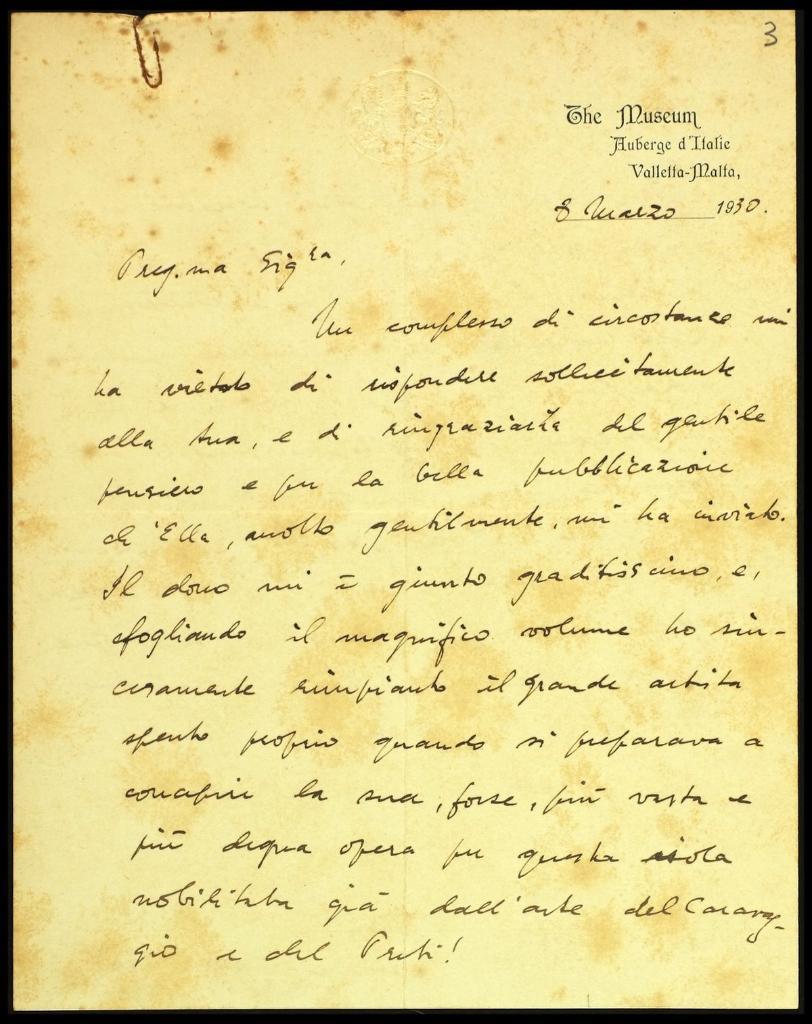 3
The Museum
Auberge d'Italie
Valletta-Malta,
8 Marzo 1930.
Preg.ma Sigra,
Un complesso di circostanze mi
ha vietato di rispondere sollecitamente
alla sua, e di ringraziarla del gentile
pensiero e per la bella pubblicazione
ch'Ella, molto gentilmente, mi ha inviato.
Il dono mi è giunto graditissimo, e,
sfogliando il magnifico volume ho sin-
ceramente rimpianto il grande artista
spento proprio quando si preparava a
concepire la sua, forse, più vasta e
più degna opera per questa isola
nobilitata già dall'arte del Caravag-
gio e del Preti!